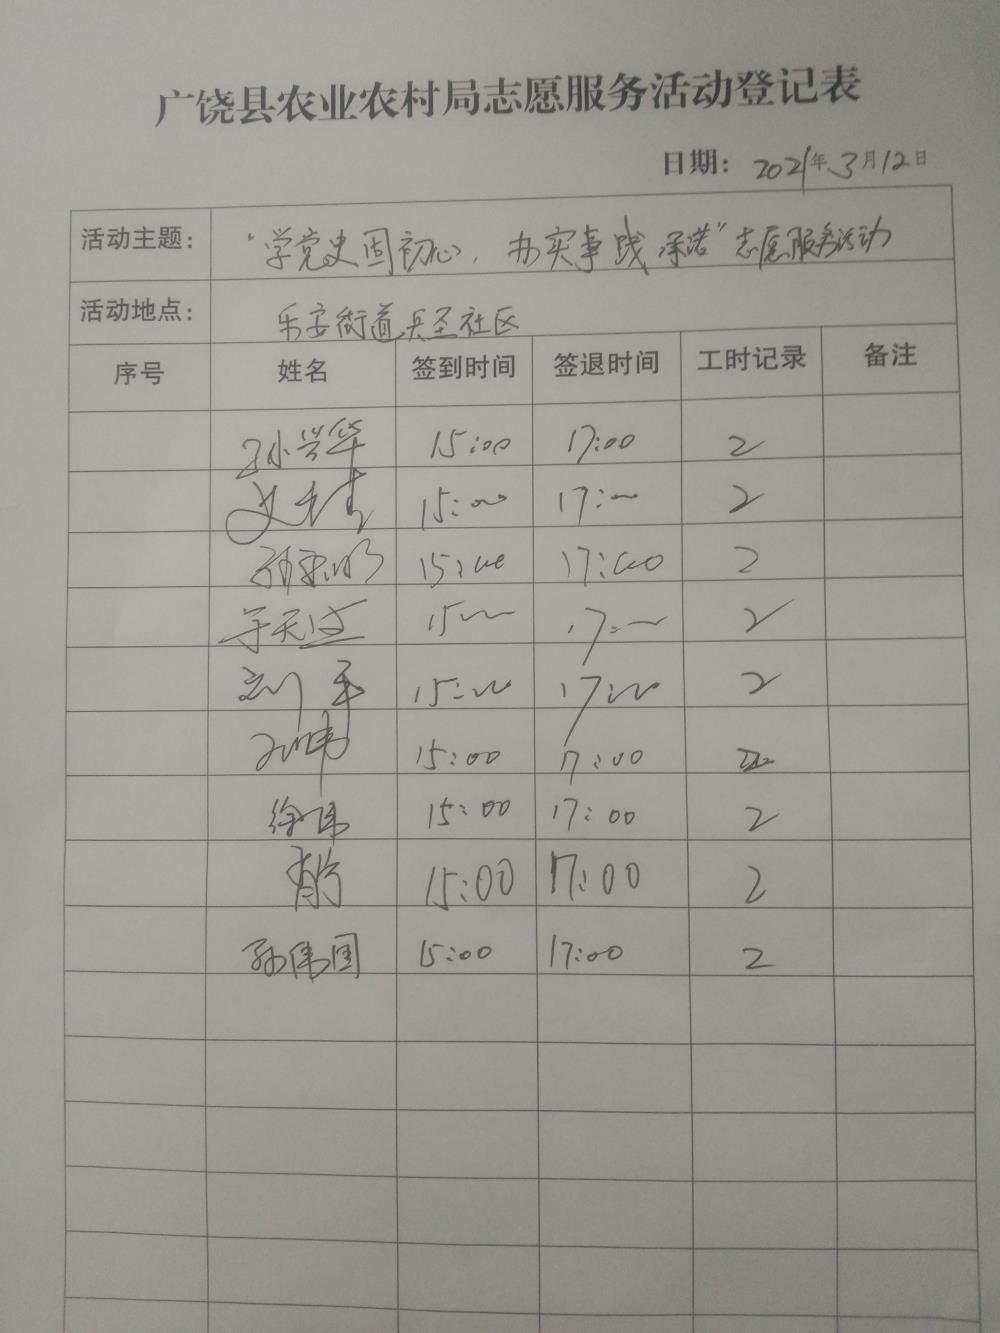 广饶县农业农村局志愿服务活动登记表
日期: 2021年3月12日
活动主题: “学党史固初心，办实事践承诺”志愿服务活动
活动地点: 乐安街道兵圣社区
序号 姓名 签到时间 签退时间 工时记录 备注
孙兴华 15:00 17:00 2
15:00 17:00 2
15:00 17:00 2
15:00 17:00 2
15:00 17:00 2
15:00 17:00 2
徐伟 15:00 17:00 2
15:00 17:00 2
孙伟国 15:00 17:00 2